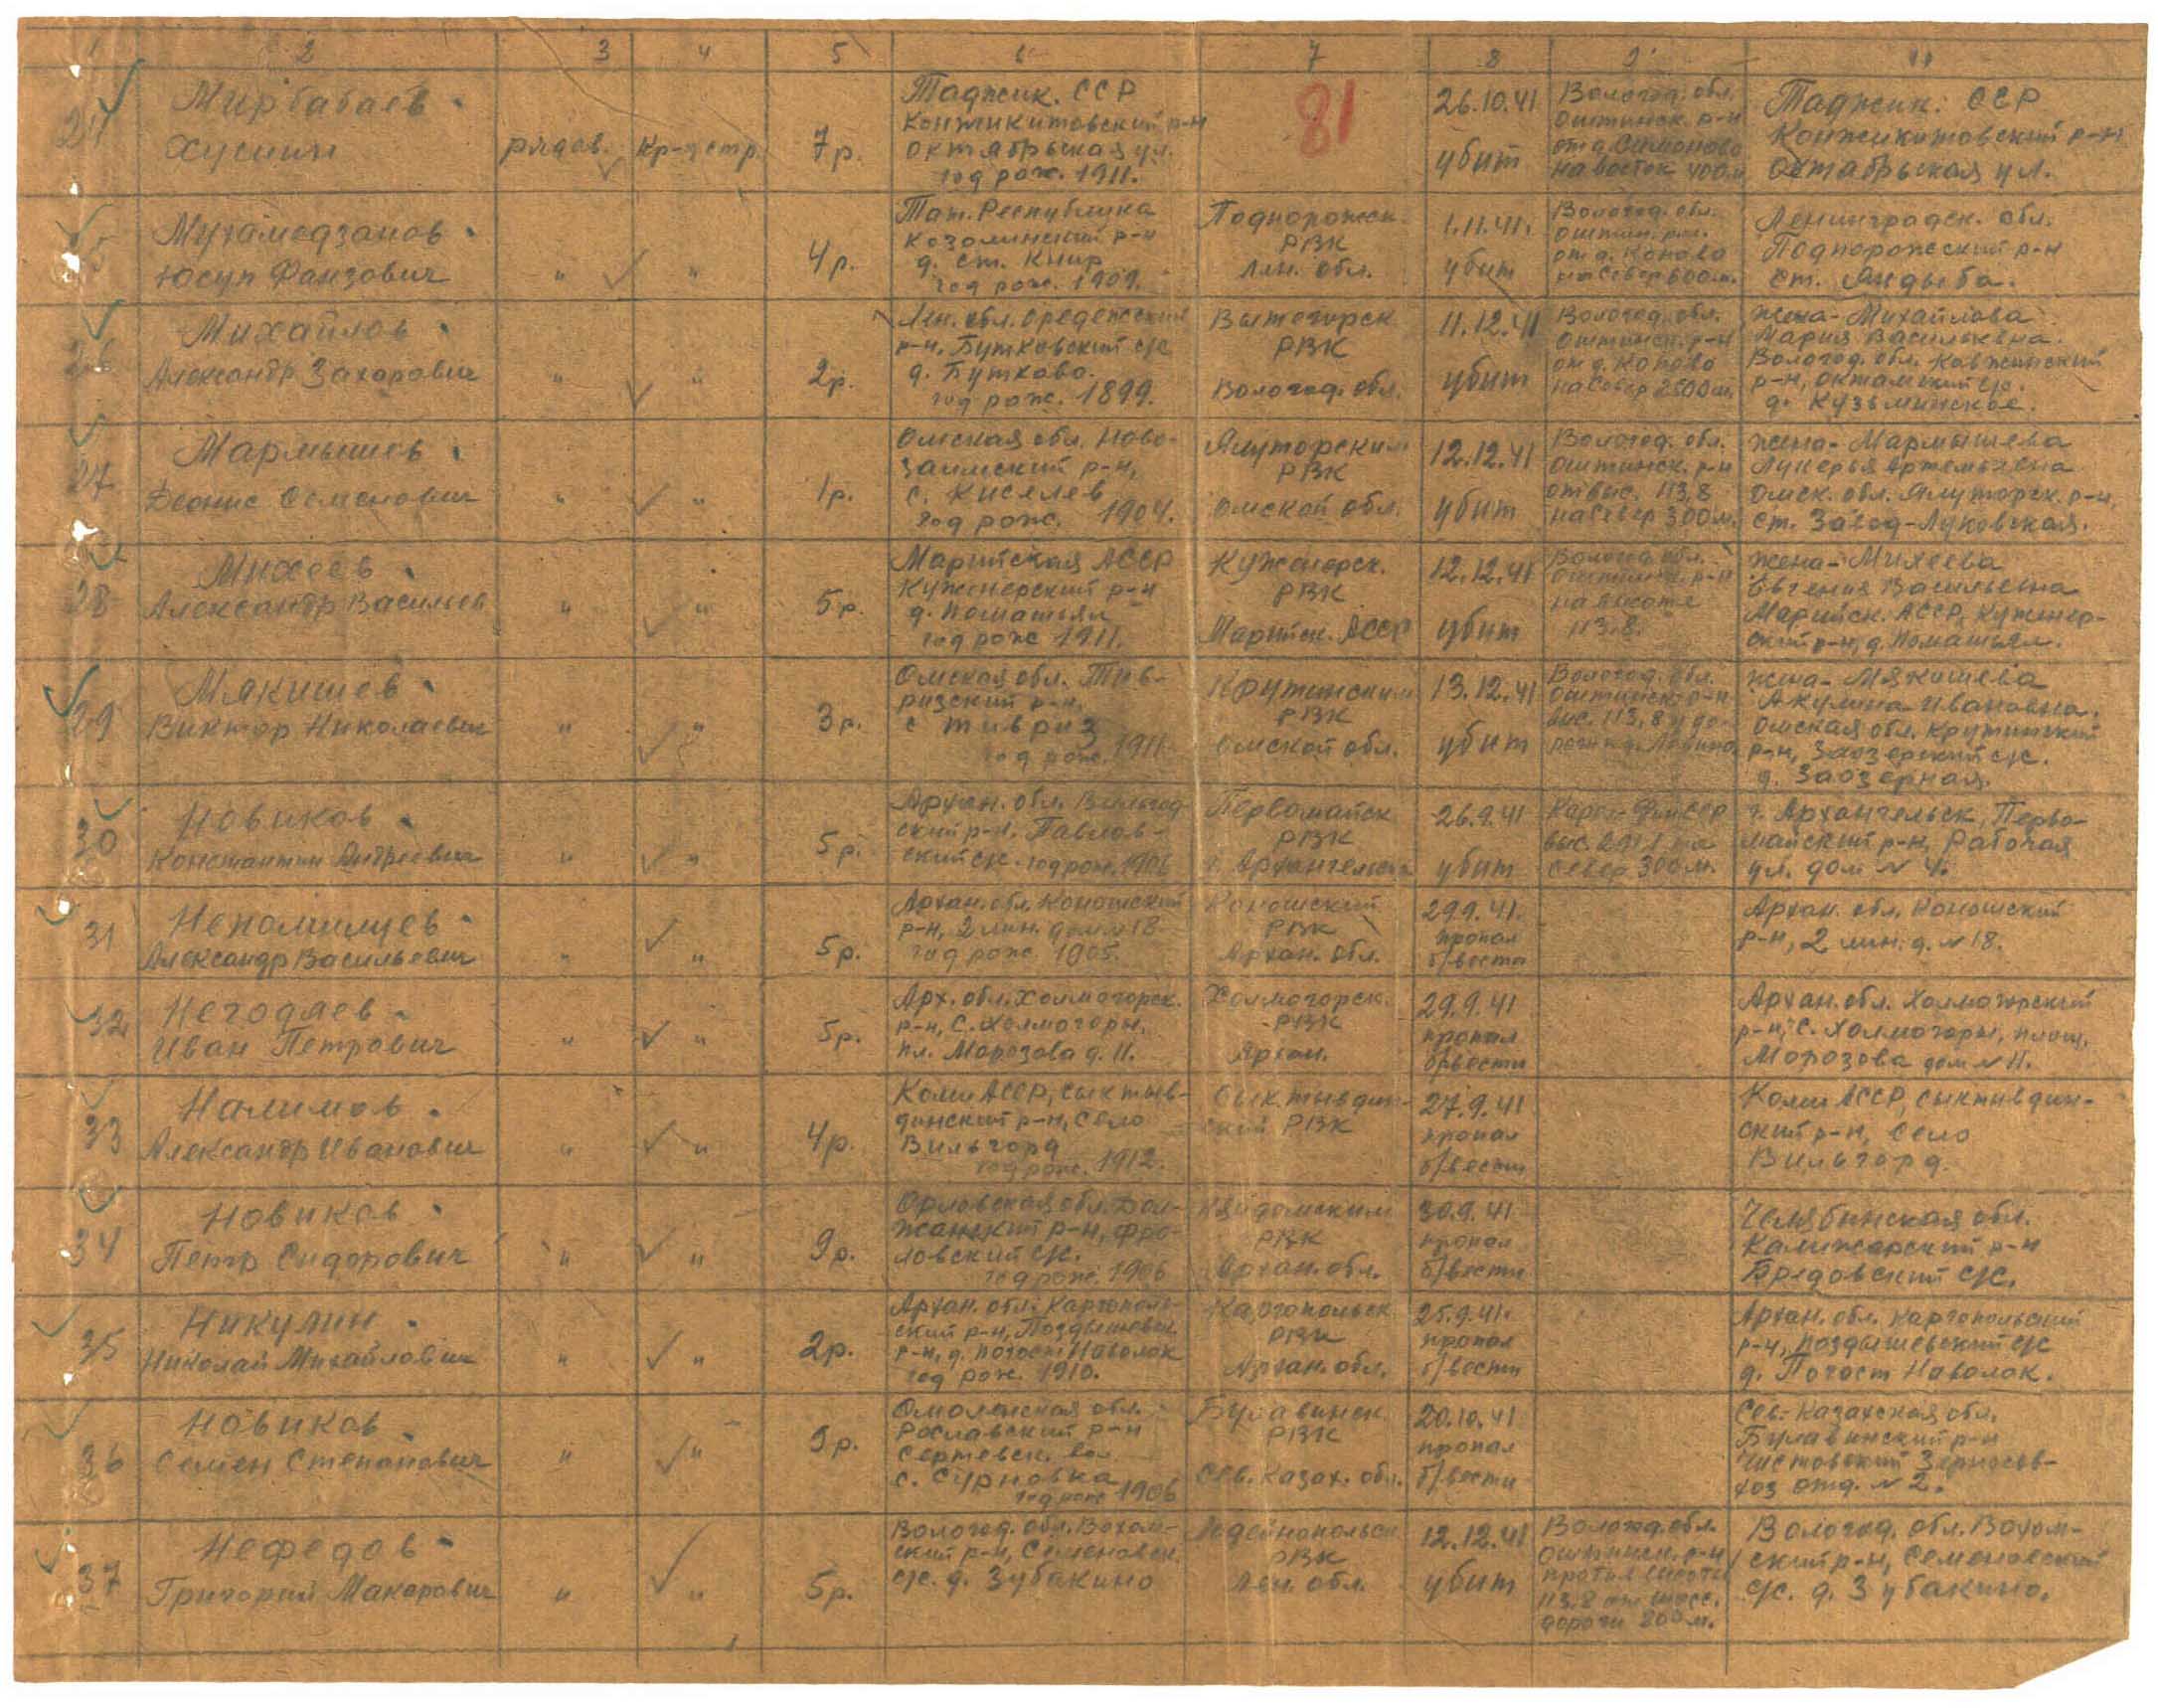 1 2 3 4 5 6 7 8 9 11
81
24
Мирбабаев
Хусиин
рядов.
кр-ц стр.
7р.
Таджик. ССР
Конжикитовский р-н
октябрьская ул.
год рож. 1911.
26.10.41
убит
Вологод. обл.
Оштинск. р-н
от д. Симоново
на восток 400м
Таджик. ССР
Конжикитовский р-н
октябрьская ул.
25
Мухамедзанов
Юсуп Фаизович
"
"
4р.
Тат. Республика
Козолинский р-н
д. ст. Книр
год рож. 1909.
Подпорожск.
РВК
Лен. обл.
1.11.41.
убит
Вологод. обл.
Оштин. р-н.
от д. Коново
на север 600м.
Ленинградск. обл.
Подпорожский р-н
ст. Яндыба.
26
Михайлов
Александр Захарович
"
"
2р.
Лен. обл. Оредежский
р-н, Бутковский с/с
д. Бутково.
год рож. 1899.
Вытегорск
РВК
Вологод. обл.
11.12.41
убит
Вологод. обл.
Оштинск. р-н
от д. Коново
на север 2500м.
жена - Михайлова
Мария Васильевна.
Вологод. обл. Ковжинский
р-н, октамский с/с.
д. Кузьминское.
27
Мармышев
Деонис Семенович
"
"
1р.
Омская обл. Ново-
заимский р-н,
с. Киселев
год рож. 1904.
Ялуторским
РВК
Омской обл.
12.12.41
убит
Вологод. обл.
Оштинск. р-н
от выс. 113,8
на север 300м.
жена - Мармышева
Лукерья Артемьевна
Омск. обл. Ялуторск. р-н,
ст. Завод-Луковская.
28
Михеев
Александр Васильев
"
"
5р.
Марийская АССР
Куженерский р-н
д. Помашъял
год рож 1911.
Куженерск.
РВК
Марийск. АССР
12.12.41
убит
Вологод. обл.
Оштинск. р-н
на высоте
113,8.
жена - Михеева
Евгения Васильевна
Марийск. АССР, Куженер-
ский р-н, д. Помашъял.
29
Мякишев
Виктор Николаевич
"
"
3р.
Омская обл. Тев-
ризский р-н.
с Тивриз
год рож. 1911.
Крутинским
РВК
Омской обл.
13.12.41
убит
Вологод. обл.
Оштинск. р-н
выс. 113,8 у до-
жена - Мякишева
Акулина Ивановна.
Омская обл. Крутинский
р-н, Заозерский с/с.
д. Заозерная.
30
Новиков
Константин Андреевич
"
"
5р.
Архан. обл. Вилегод-
ский р-н. Павлов-
ский с/с. год рож. 1906
Первомайск
РВК
г. Архангельск
26.9.41
убит
Карел-Фин ССР
север 300м.
г. Архангельск, Перво-
майский р-н, Рабочая
ул. дом № 4.
31
Непомилуев
Александр Васильевич
"
"
5р.
Архан. обл. Коношский
р-н, 2 лин. дом № 18
год рож 1905.
Коношский
РВК
Архан. обл.
29.9.41.
пропал
б/вести
Архан. обл. Коношский
р-н, 2 лин. д. № 18.
32
Негодяев
Иван Петрович
"
"
5р.
Арх. обл. Холмогорск.
р-н, С. Холмогоры,
пл. Морозова д. 11.
Холмогорск.
РВК
Архан.
29.9.41
пропал
б/вести
Архан. обл. Холмогорский
р-н, С. Холмогоры, площ.
Морозова дом № 11.
33
Налимов
Александр Иванович
"
"
4р.
Коми АССР, сыктыв-
динский р-н, село
Вильгорд
год рож. 1912.
Сыктывдин-
ский РВК
27.9.41
пропал
б/вести
Коми АССР, сыктывдин-
ский р-н, село
Вильгорд.
34
Новиков
Петр Сидорович
"
"
9р.
Орловская обл. Дол-
жанский р-н, Фро-
ловский с/с.
год рож. 1906
Няндомским
РВК
Архан. обл.
30.9.41
пропал
б/вести
Челябинская обл.
Калижарский р-н
Бредовский с/с.
35
Никулин
Николай Михайлович
"
"
2р.
Архан. обл. Каргополь-
ский р-н, Поздышевск.
р-н, д. погост Наволок
год рож. 1910.
Каргопольск
РВК
Архан. обл.
25.9.41.
пропал
б/вести
Архан. обл. Каргопольский
р-н, поздышевский с/с
д. Погост Наволок.
36
Новиков
Семен Степанович
"
"
9р.
Смоленская обл.
Рославский р-н
Сертевск. вол.
с. Сурновка
год рож 1906
Булавинск.
РВК
Сев. Казах. обл.
20.10.41
пропал
б/вести
Сев-Казахская обл.
Булавинский р-н
Чистовский Зерносов-
хоз отд. № 2.
37
Нефедов
Григорий Макарович
"
"
5р.
Вологод. обл. Вохом-
ский р-н, Семеновск.
с/с. д. Зубакино
Лодейнопольск
РВК
Лен. обл.
12.12.41
убит
Вологод. обл.
Оштинск. р-н
против высоты
113,8 от шосс.
дороги 200м.
Вологод. обл. Вохом-
ский р-н, Семеновский
с/с. д. Зубакино.